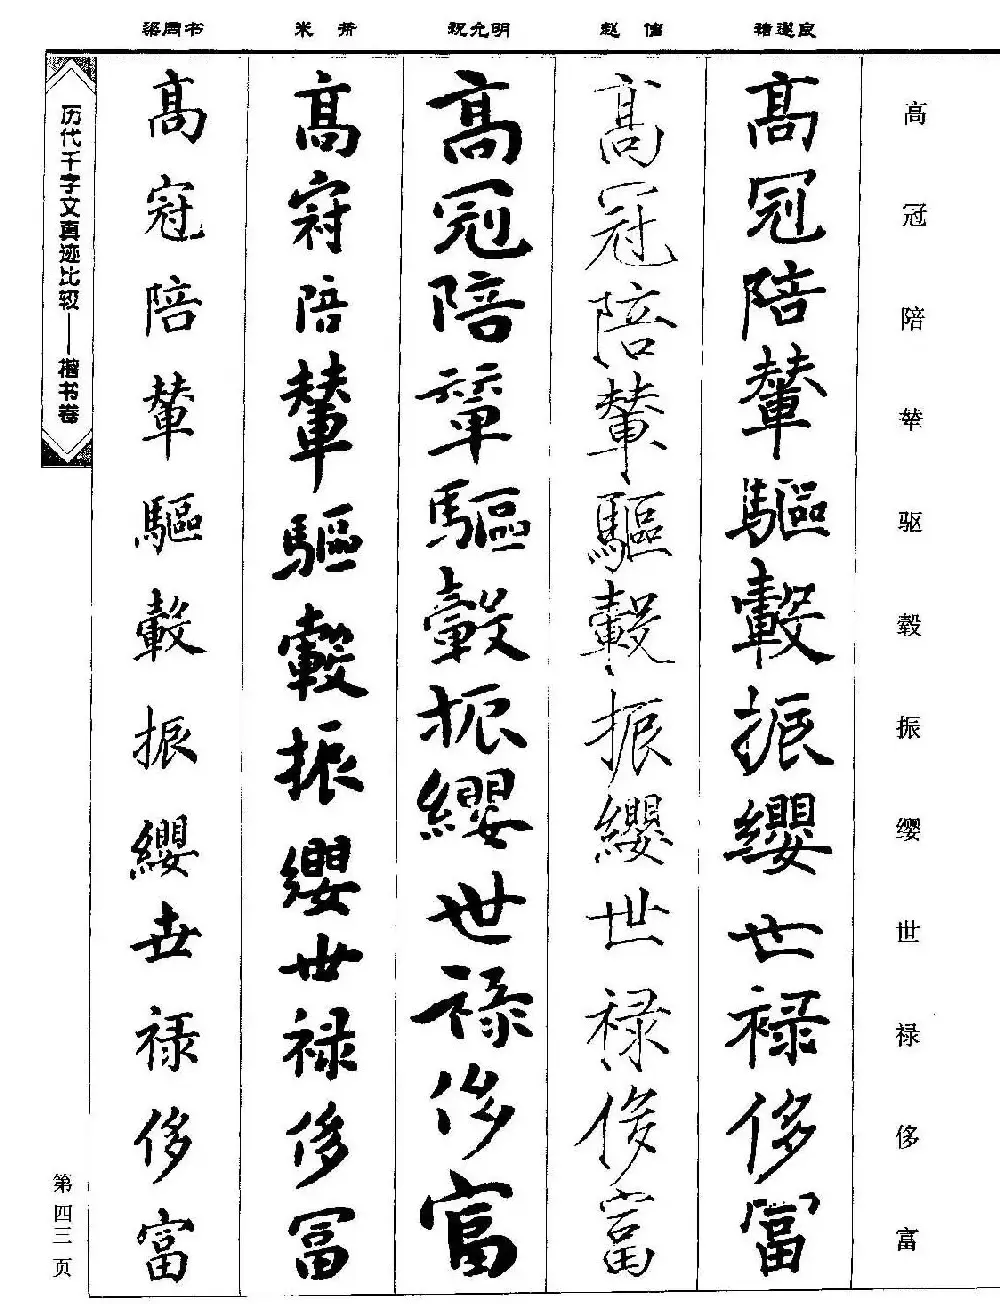 梁同书 米芾 祝允明 赵佶 褚遂良
高冠陪辇驱毂振缨世禄侈富
髙冠陪輦驅轂振纓世禄侈富
髙冠陪輦驅轂振纓世禄侈富
髙冠陪輦驅轂振纓世禄侈富
髙冠陪輦驅轂振纓世禄侈富
髙冠陪輦驅轂振纓世禄侈富
历代千字文真迹比较——楷书卷
第四三页